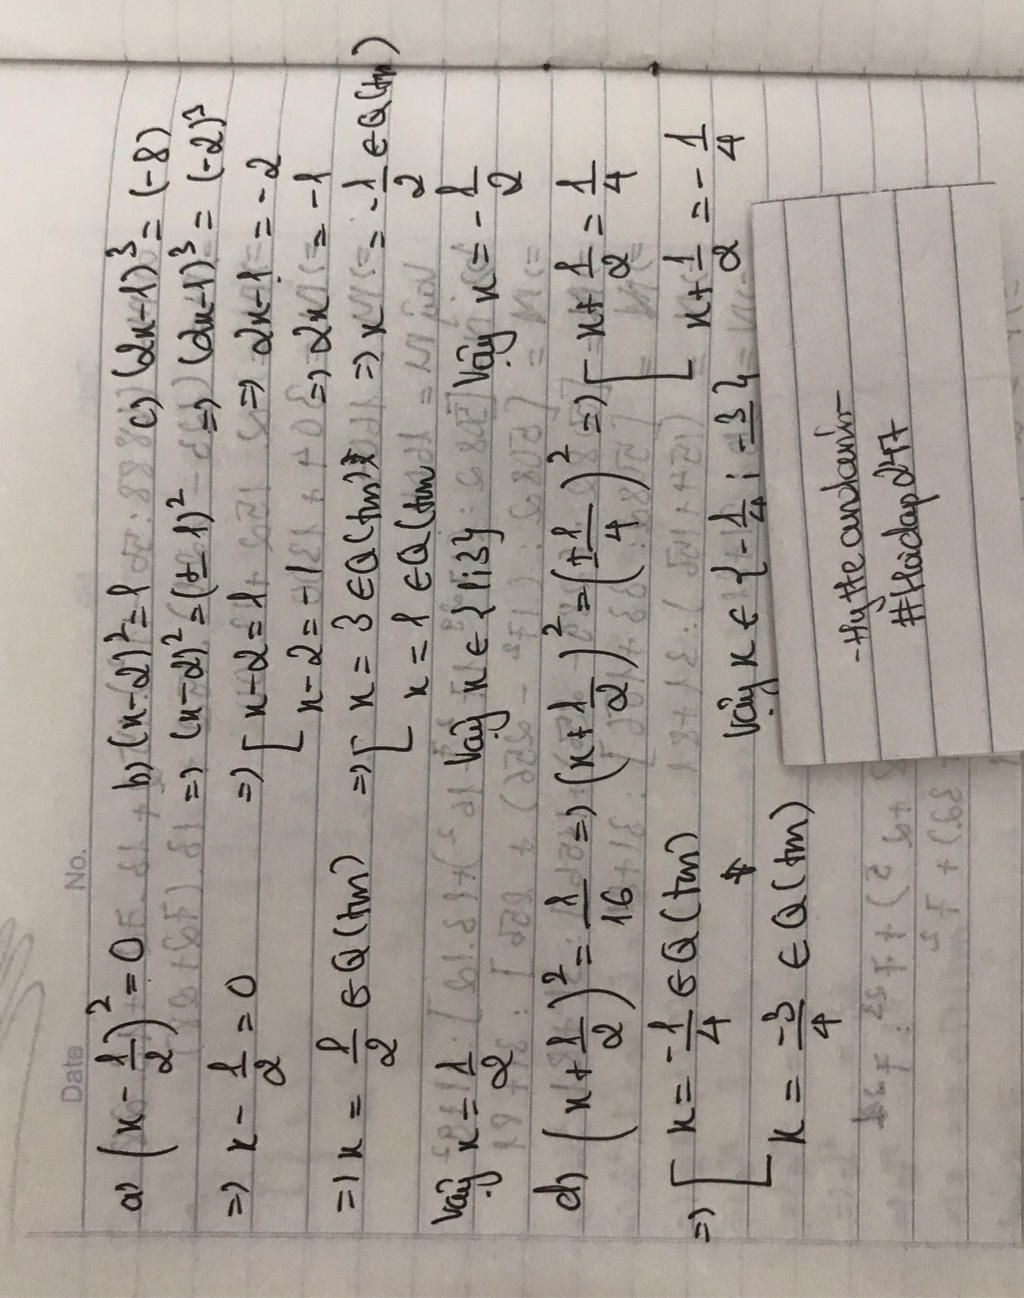 Date No.
a) (x - 1/2)² = 0
=) x - 1/2 = 0
=) x = 1/2 ∈ Q (tm)
Vậy x = 1/2
b) (x-2)² = 1
=) (x-2)² = (±1)²
=) [ x-2=1
x-2=-1
=) [ x = 3 ∈ Q (tm)
x = 1 ∈ Q (tm
Vậy x ∈ {1;3}
c) (2x-1)³ = (-8)
=) (2x-1)³ = (-2)³
=) 2x-1 = -2
=) 2x = -1
=) x = -1/2 ∈ Q (tm)
Vậy x = -1/2
d) (x + 1/2)² = 1/16 =) (x + 1/2)² = (±1/4)² =) [ x + 1/2 = 1/4
x + 1/2 = -1/4
=) [ x = -1/4 ∈ Q (tm)
x = -3/4 ∈ Q (tm)
Vậy x ∈ {-1/4; -3/4}
#Hoidap247